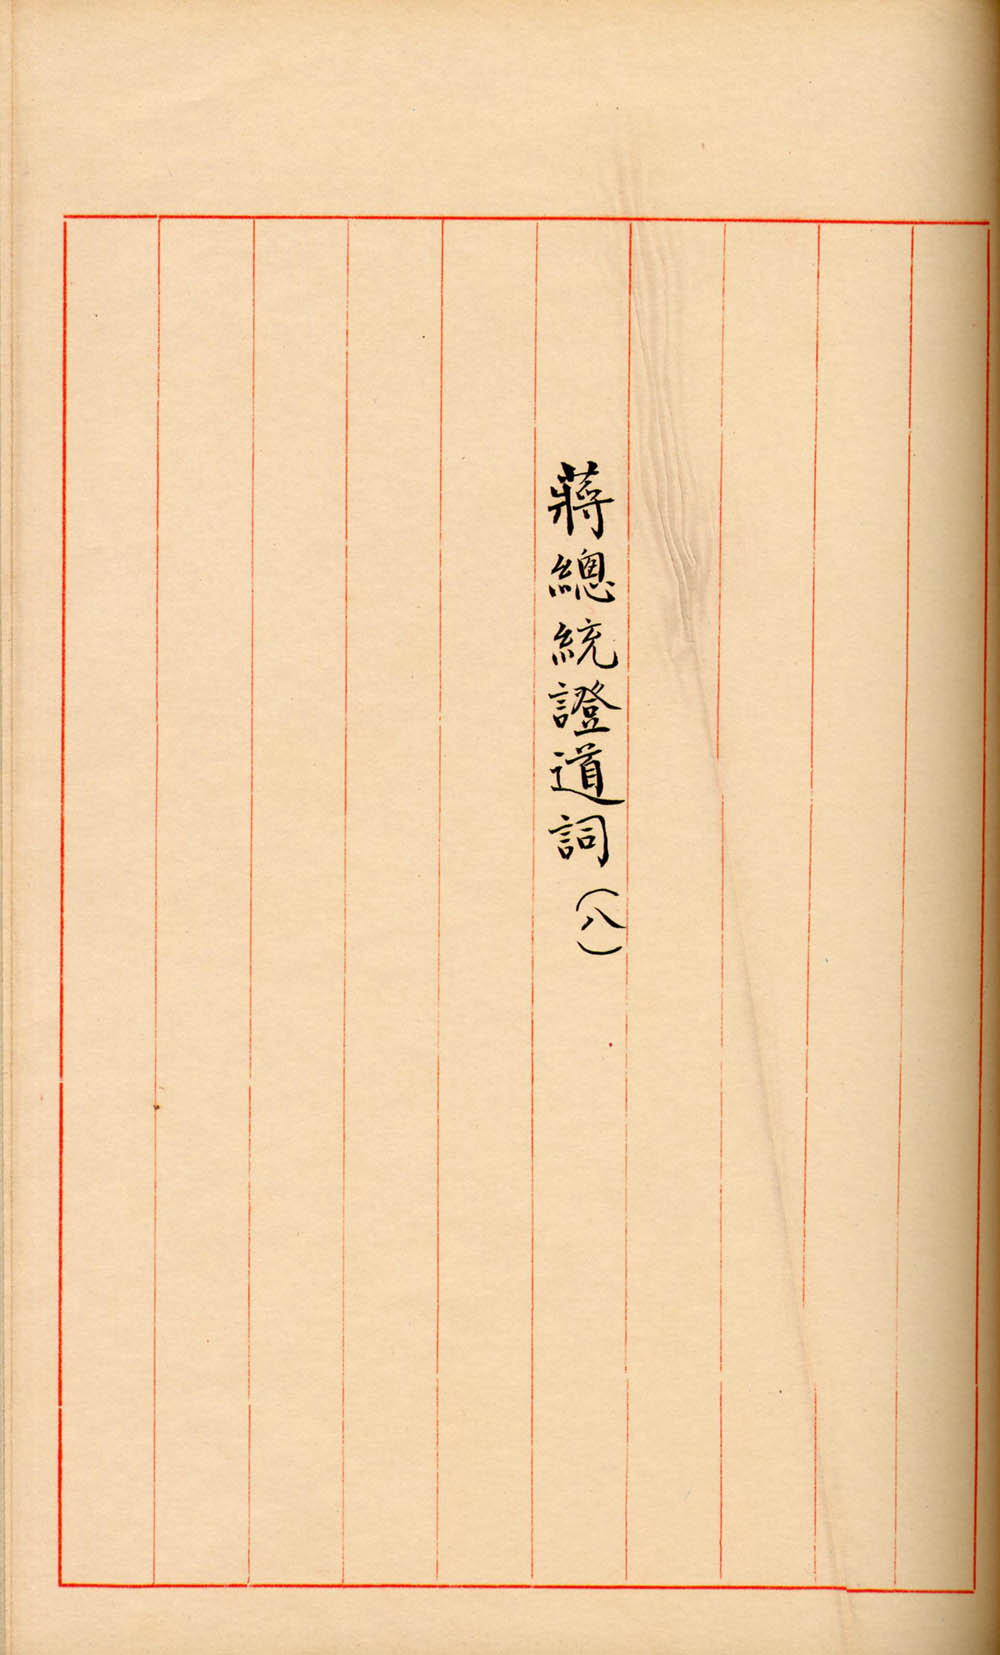 蔣總統證道詞（八）